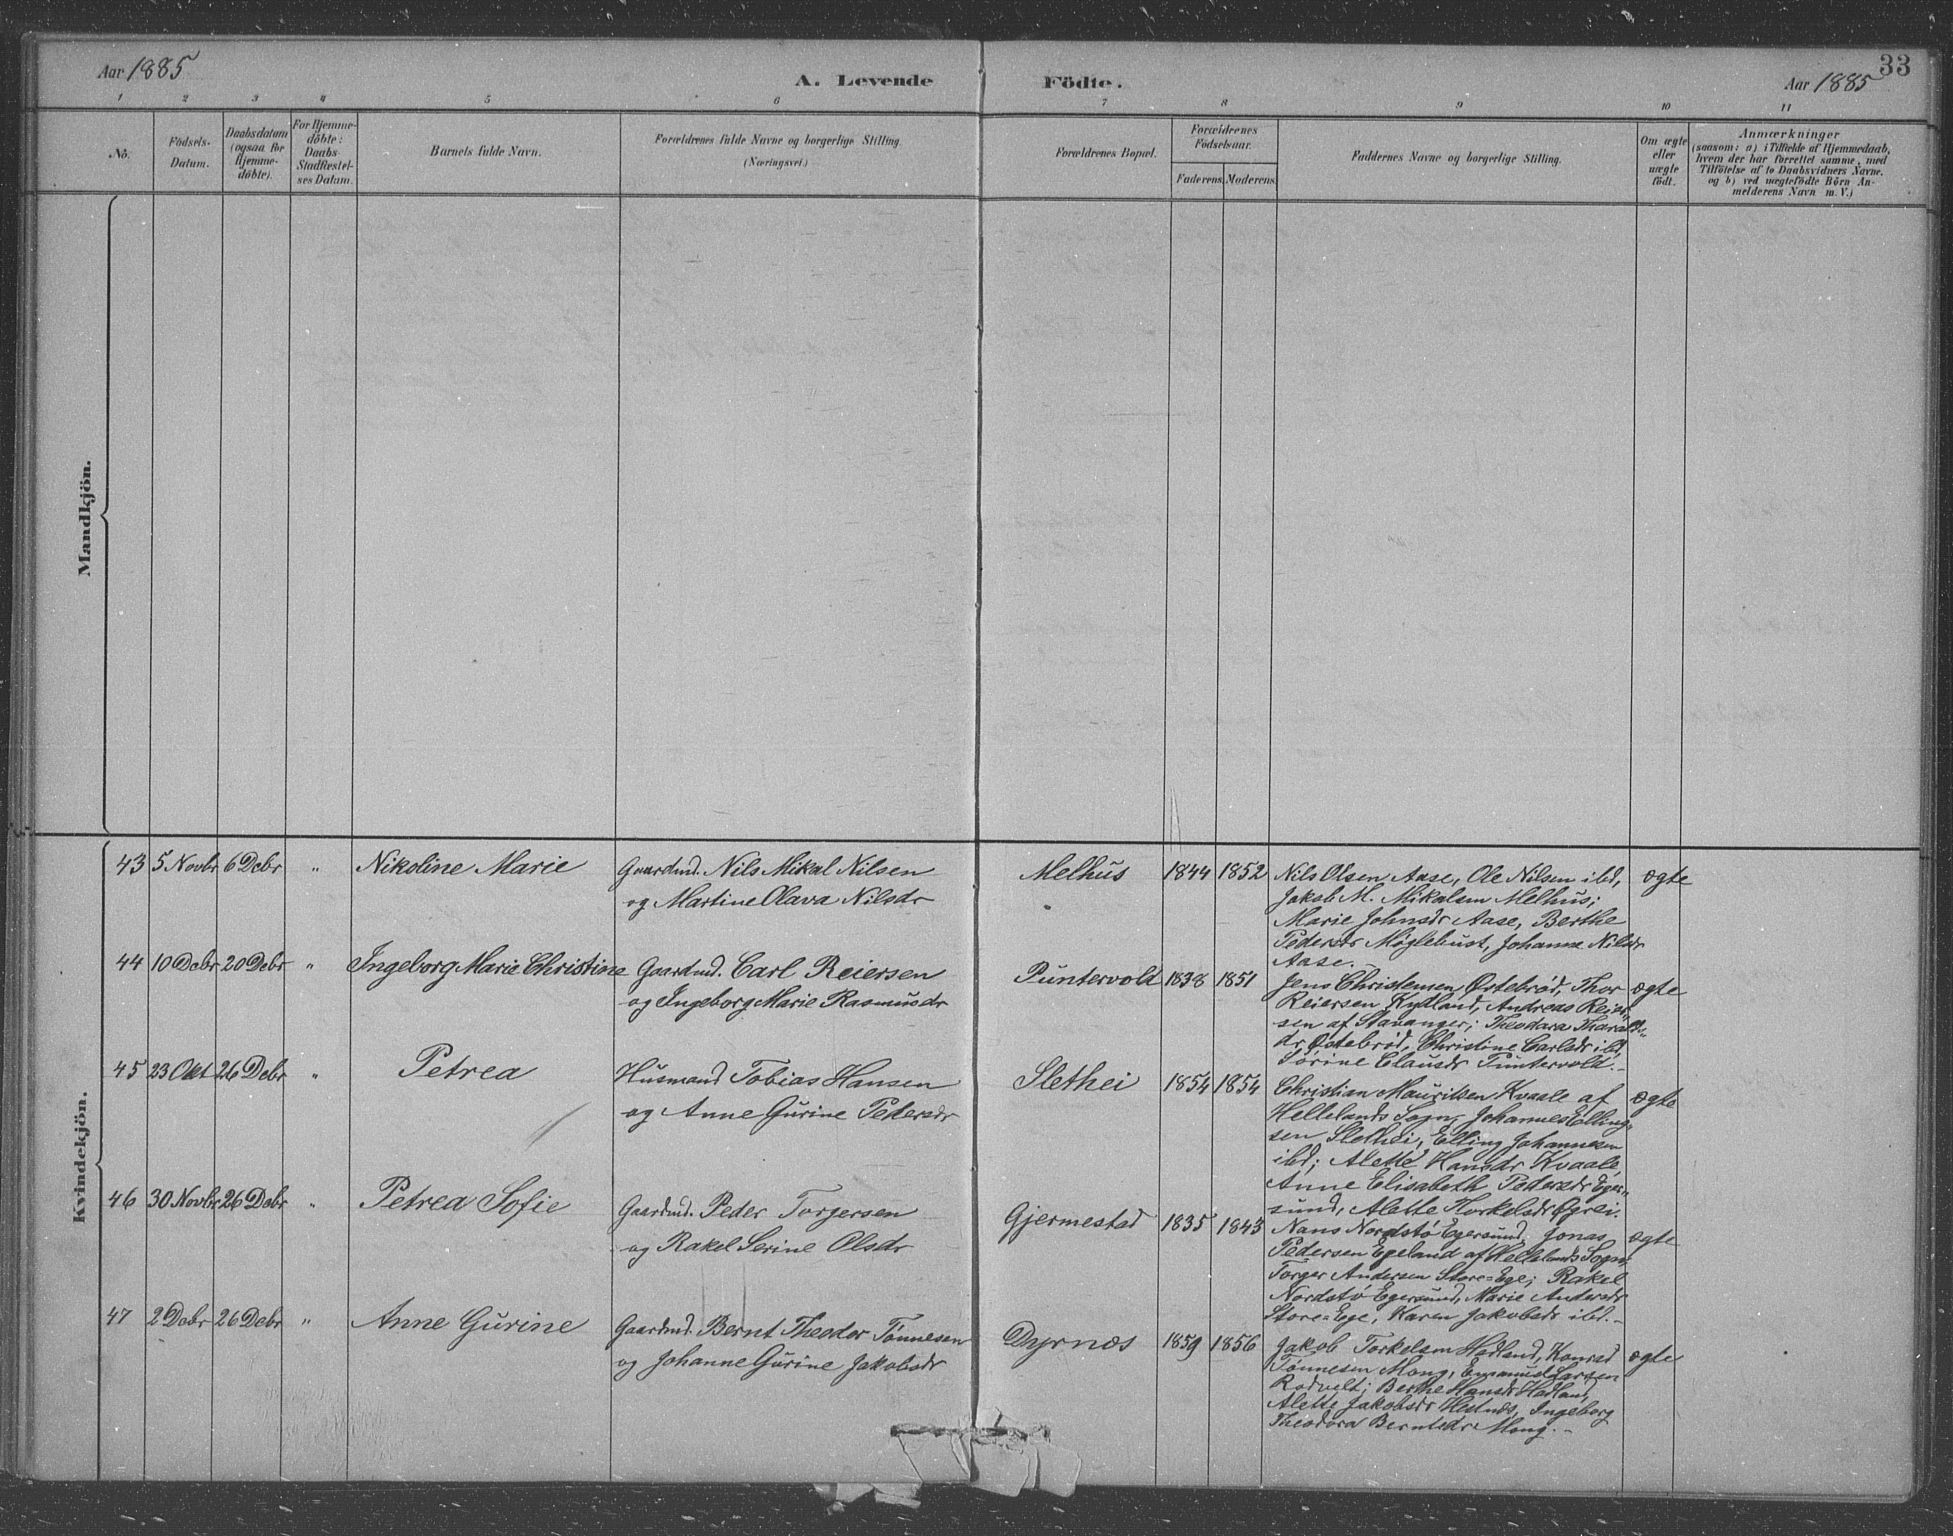 Aar 1885
A. Levende Födte.
Aar 1885
33
1 2 3 4 5 6 7 8 9 10 11
No.
Födsels-
Datum.
Daabsdatum
(ogsaa for
Hjemme-
döbte).
For Hjemme-
döbte:
Daabs-
Stadfæstel-
ses Datum.
Barnets fulde Navn.
Forældrenes fulde Navne og borgerlige Stilling.
(Næringsvei.)
Forældrenes Bopæl.
Forældrenes
Födselsaar.
Faderens.
Moderens.
Faddernes Navne og borgerlige Stilling.
Om ægte
eller
uægte
födt.
Anmærkninger
(saasom: a) i Tilfælde af Hjemmedaab,
hvem der har forrettet samme, med
Tilföielse af to Daabsvidners Navne.
og b) ved uægtefödte Börn An-
melderens Navn m. V.)
Mandkjön.
Kvindekjön.
43 5 Novbr 6 Debr " Nikoline Marie
Gaardmd. Nils Mikal Nilsen
og Martine Olava Nilsdr
Melhus 1844 1852
Nils Olsen Aase, Ole Nilsen ibd,
Jakob M. Mikalsen Melhus;
Marie Johnsdr Aase, Berthe
Pedersdr Møglebust, Johanne Nilsdr
Aase.
ægte
44 10 Debr 20 Debr " Ingeborg Marie Christine
Gaardmd. Carl Reiersen
og Ingeborg Marie Rasmusdr
Puntervold 1838 1851
Jens Christensen Østebrød, Thor
Reiersen Kydland, Andreas Reier-
sen af Stavanger; Theodora Tharalds-
dr Østebrød, Christine Carlsdr ibd,
Sørine Clausdr Puntervold.-
ægte
45 23 Okt 26 Debr " Petrea
Husmand Tobias Hansen
og Anne Gurine Pedersdr
Slethei 1854 1854
Christian Mauritsen Kvaale af
Hellelands Sogn, Johannes Elling-
sen Slethei, Elling Johannesen
ibd; Alette Hansdr Kvaale,
Anne Elisabeth Pedersdr Eger-
sund, Alette Torkelsdr Øgrei.
ægte
46 30 Novbr 26 Debr " Petrea Sofie
Gaardmd. Peder Torgersen
og Rakel Serine Olsdr
Gjermestad 1835 1843
Hans Nordstø Egersund, Jonas
Pedersen Egeland af Hellelands Sogn,
Torger Andersen Store-Ege; Rakel
Nordstø Egersund, Marie Andersdr
Store-Ege, Karen Jakobsdr ibd.-
ægte
47 2 Debr 26 Debr " Anne Gurine
Gaardmd. Bernt Theodor Tønnesen
og Johanne Gurine Jakobsdr
Dyrnæs 1859 1856
Jakob Torkelsen Hadland, Konrad
Tønnesen Mong, Emanuel Larsen
Rodvelt; Berthe Hansdr Hadland,
Alette Jakobsdr Hestnæs, Ingeborg
Theodora Berntsdr Mong.-
ægte